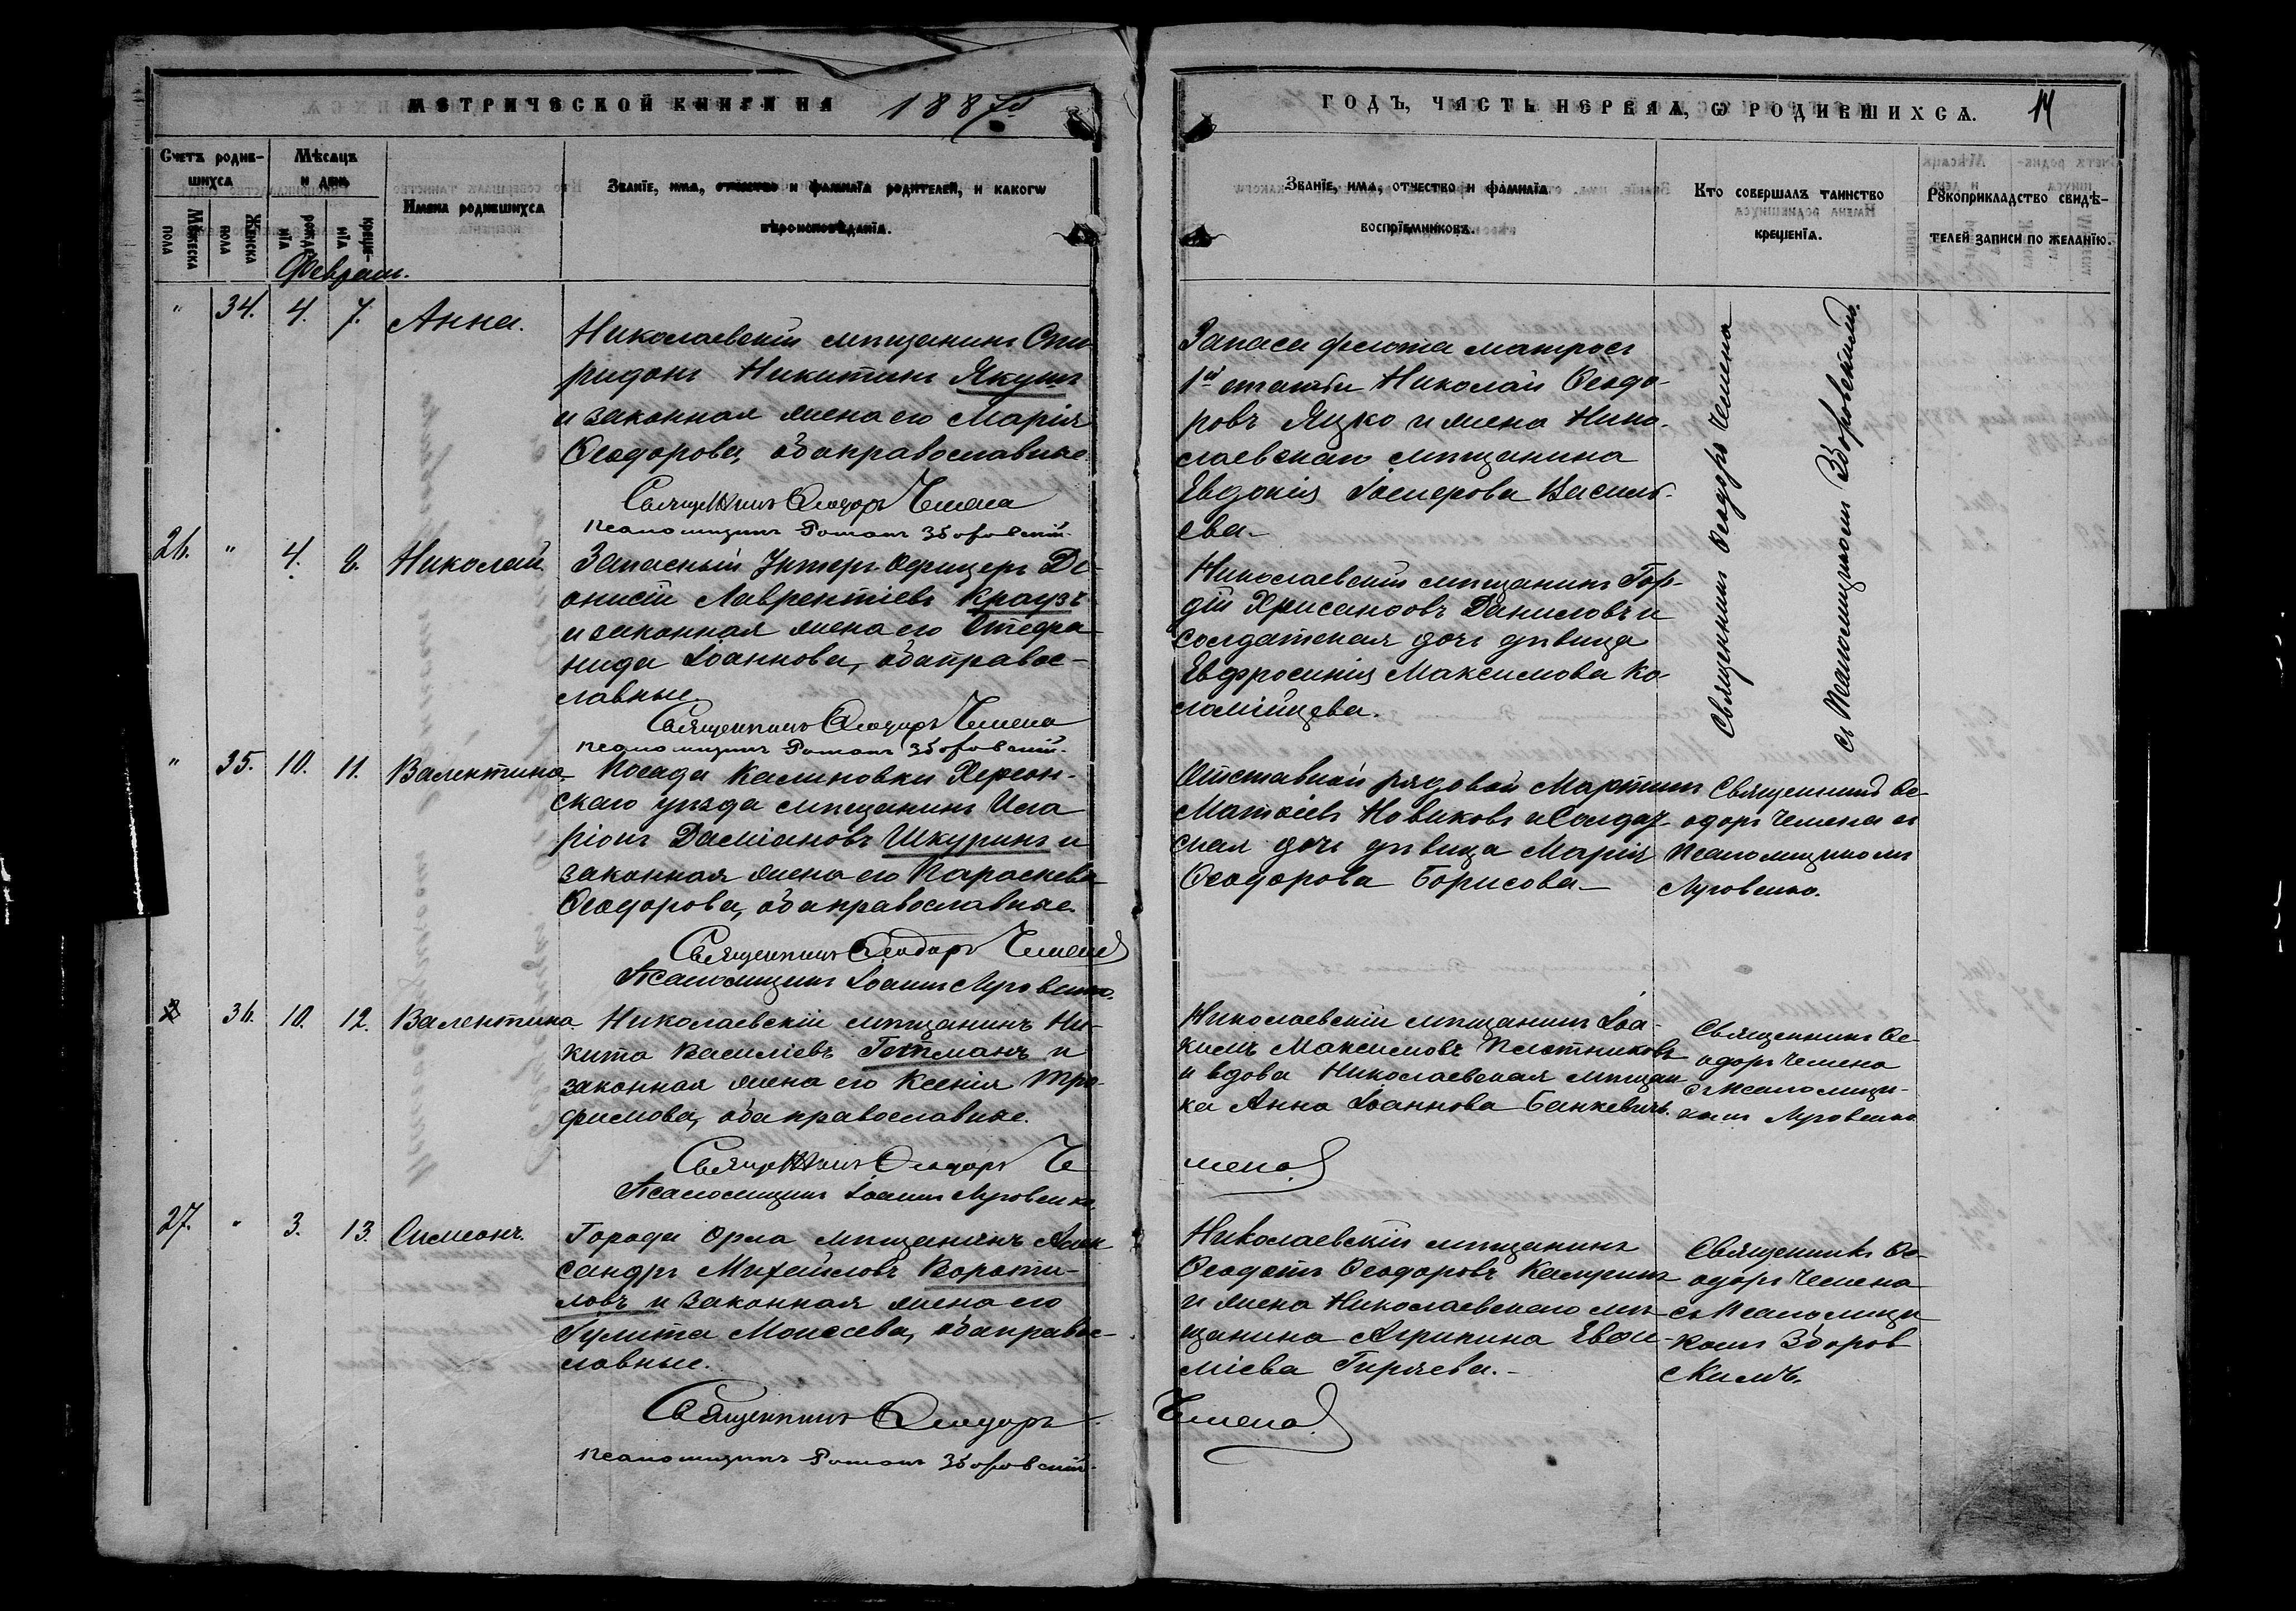 МЕТРИЧЕСКОЙ КНИГИ НА 1887й
ГОДЪ, ЧАСТЬ ПЕРВАЯ, Ѡ РОДИВШИХСѦ. 14
Счетъ родив-
шихсѧ
Мѣсѧцъ
и день
Имена родившихсѧ
Званїе, имѧ, отчество и фамилїѧ родителей, и какогѡ
вѣроисповѣданїѧ.
Званїе, имѧ, отчество и фамилїѧ
воспрїемниковъ.
Кто совершалъ таинство
крещенїѧ.
Рꙋкоприкладство свидѣ-
телей записи по желанїю.
Мꙋжеска
пола
Женска
пола
рожде-
нїѧ
креще-
нїѧ
Февраль.
" 34. 4. 7. Анна.
Николаевскій мѣщанинъ Спи
ридонъ Никитинъ Якушъ
и законная жена его Марія
Ѳеодорова, оба православные
Священникъ Ѳеодоръ Чемена
Псаломщикъ Романъ Зборовскій.
Запаса флота матросъ
1й статьи Николай Ѳеодо-
ровъ Яцко и жена Нико-
лаевскаго мѣщанина
Евдокія Василь-
ева.
Священникъ Ѳеодоръ Чемена
съ Псаломщикомъ Зборовскимъ.
26. " 4. 8. Николай.
Запасный Унтеръ Офицеръ Ді-
онисій Лаврентіевъ Краузъ
и законная жена его Стефа-
нида Іоаннова, оба правос-
лавные.
Священникъ Ѳеодоръ Чемена
Псаломщикъ Романъ Зборовскій.
Николаевскій мѣщанинъ Гор-
дій Хрисанѳовъ Даниловъ и
солдатская дочь дѣвица
Евфросинія Максимова Ко-
ломійцева.
" 35. 10. 11. Валентина
Посада Калиновки Херсон-
скаго уѣзда мѣщанинъ Ила
ріонъ Даміановъ Шкуринъ и
законная жена его Параскева
Ѳеодорова, оба православные.
Священникъ Ѳеодоръ Чемена
Псаломщикъ Іоаннъ Луговенко.
Отставной рядовой Мартинъ
Матѳіевъ Новиковъ и Солдат-
ская дочь дѣвица Марія
Ѳеодорова Борисова
Священникъ Ѳе-
одоръ Чемена съ
Псаломщикомъ
Луговенко.
36. 10. 12. Валентина
Николаевскій мѣщанинъ Ни-
кита Василіевъ Гетманъ и
законная жена его Ксенія Тро-
фимова, оба православные.
Священникъ Ѳеодоръ Че
мена
Псаломщикъ Іоаннъ Луговенко.
Николаевскій мѣщанинъ Іоа-
кимъ Максимовъ Плотниковъ
и вдова Николаевская мѣщан
ка Анна Іоаннова Банкевичъ.
Священникъ Ѳе-
одоръ Чемена
съ Псаломщи-
комъ Луговенко
27. " 3. 13. Симеонъ.
Города Орла мѣщанинъ Алек
сандръ Михайловъ Вороти-
ловъ и законная жена его
Іулита Моисеева, оба правос-
лавные.
Священникъ Ѳеодоръ
Чемена
Псаломщикъ Романъ Зборовскій.
Николаевскій мѣщанинъ
Ѳеодотъ Ѳеодоровъ
и жена Николаевскаго мѣ-
щанина Агрипина
Священникъ Ѳе-
одоръ Чемена
съ Псаломщи
комъ Зборов
скимъ.